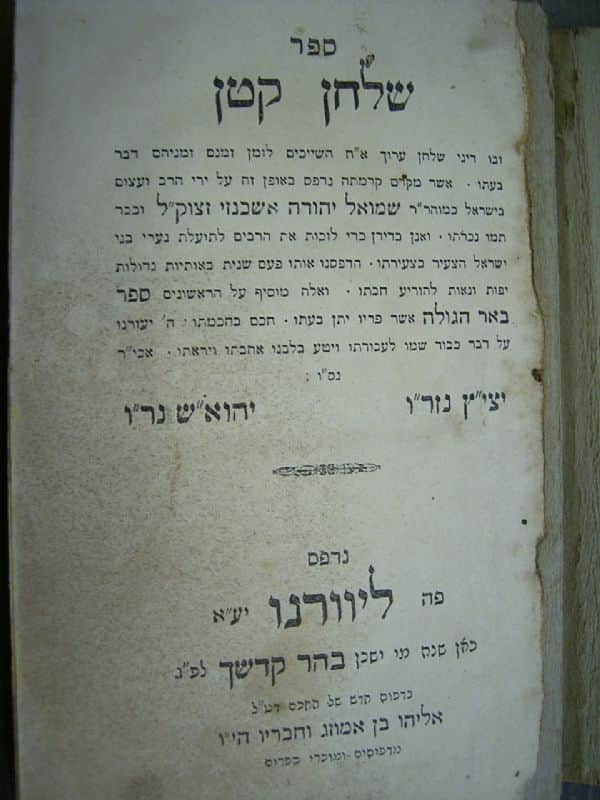 ספר
שלחן קטן
ובו דיני שלחן ערוך א״ח השייכים לזמן זמנם זמניהם דבר
בעתו · אשר מקדם קדמתה נדפס באופן זה על ידי הרב ועצום
בישראל כמוהר״ר שמואל יהודה אשכנזי זצוק״ל וכבר
תמו נכרתו · ואנן בדידן כדי לזכות את הרבים לתועלת נערי בני
ישראל הצעיר בצעירתו · הדפסנו אותו פעם שנית באותיות גדולות
יפות ונאות להודיע חבתו · ואלה מוסיף על הראשונים ספר
באר הגולה אשר פריו יתן בעתו · חכם בחכמתו · ה׳ יעזרנו
על דבר כבוד שמו לעבודתו ויטע בלבנו אהבתו ויראתו · אכי״ר
נס״ו :
יצי״ץ נזר״ו יהוא״ש נר״ו
נדפס
פה ליוורנו יע״א
כאן שנת מי ישכן בהר קדשך לפ״ג
בדפוס חדש של החכם
אליהו בן אמוזג וחבריו הי״ו
מדפיסים ומוכרי ספרים